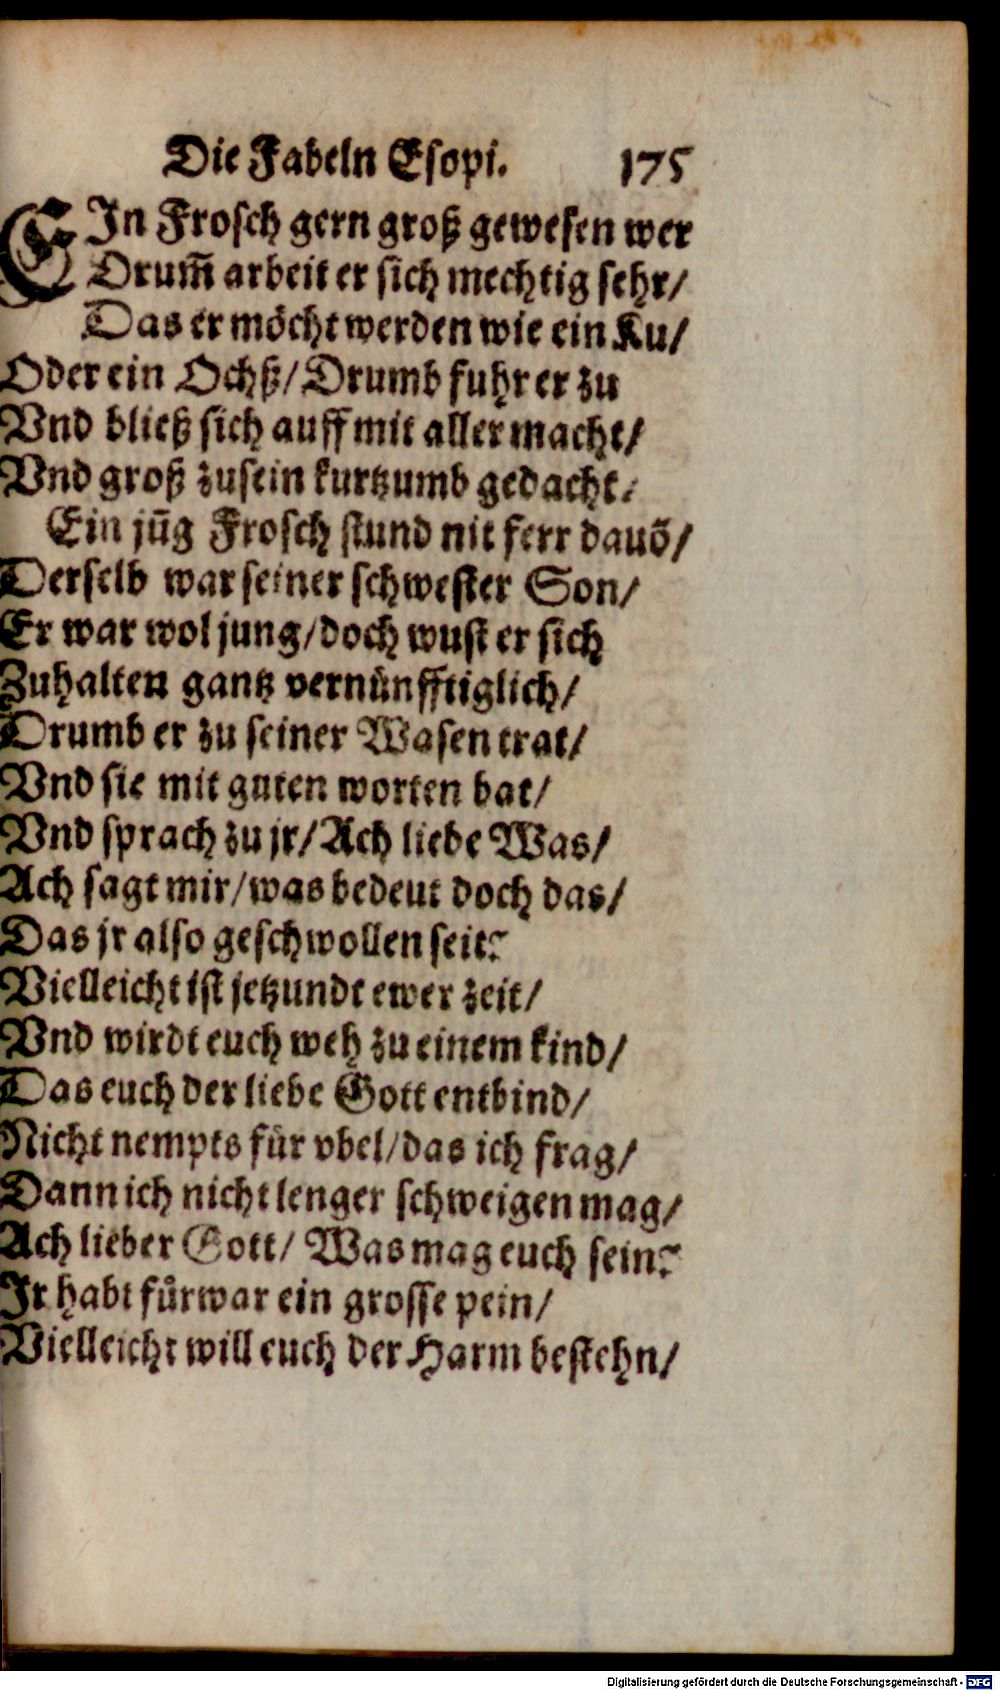 Die Fabeln Esopi. 175
EIn Frosch gern groß gewesen wer
Drum̃ arbeit er sich mechtig sehr/
Das er möcht werden wie ein Ku/
Oder ein Ochß/ Drumb fuhr er zu
Vnd bließ sich auff mit aller macht/
Vnd groß zusein kurtzumb gedacht/
Ein jũg Frosch stund nit ferr dauõ/
Derselb war seiner schwester Son/
Er war wol jung/ doch wust er sich
Zuhalten gantz vernünfftiglich/
Drumb er zu seiner Wasen trat/
Vnd sie mit guten worten bat/
Vnd sprach zu jr/ Ach liebe Was/
Ach sagt mir/ was bedeut doch das/
Das jr also geschwollen seit?
Vielleicht ist jetzundt ewer zeit/
Vnd wirdt euch weh zu einem kind/
Das euch der liebe Gott entbind/
Nicht nempts für vbel/ das ich frag/
Dann ich nicht lenger schweigen mag/
Ach lieber Gott/ Was mag euch sein?
Ir habt fürwar ein grosse pein/
Vielleicht will euch der Harm bestehn/
Digitalisierung gefördert durch die Deutsche Forschungsgemeinschaft - DFG